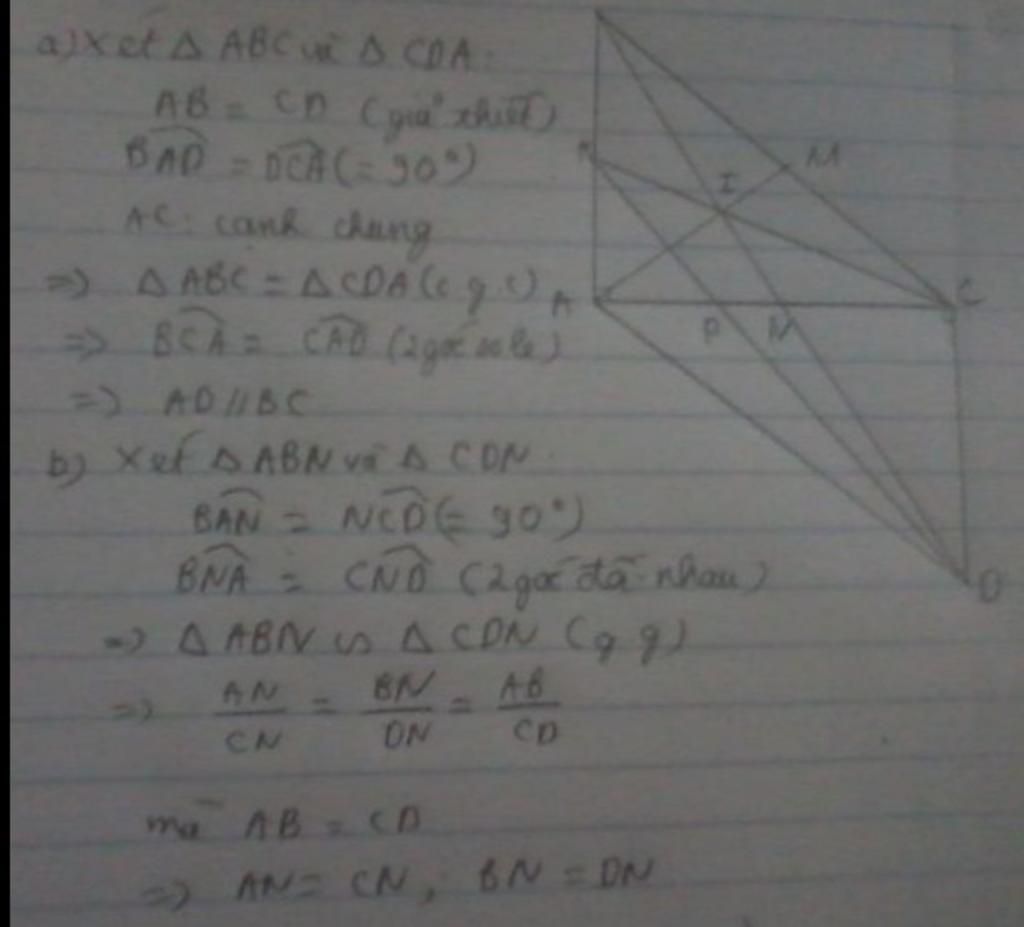 a) Xét Δ ABC và Δ CDA:
AB = CD (giả thiết)
BAD = DCA (= 90°)
AC: cạnh chung
=> Δ ABC = Δ CDA (c g c)
=> BCA = CAD (2 góc so le)
=> AD // BC
b) Xét Δ ABN và Δ CDN.
BAN = NCD (= 90°)
BNA = CND (2 góc đđ nhau)
=> Δ ABN ∽ Δ CDN (g g)
=> AN/CN = BN/DN = AB/CD
mà AB = CD
=> AN = CN, BN = DN
K
M
I
A
P
N
C
D